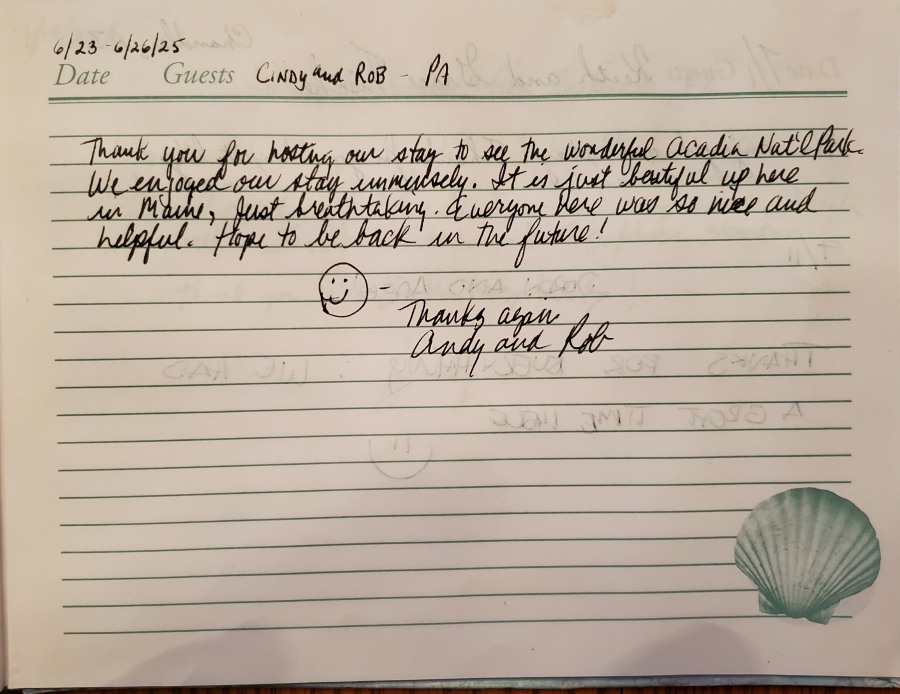 6/23-6/26/25
Date Guests Cindy and Rob - PA
Thank you for hosting our stay to see the wonderful Acadia Nat'l Park.
We enjoyed our stay immensely. It is just beautiful up here
in Maine, Just breathtaking. Everyone here was so nice and
helpful. Hope to be back in the future!
Thanks again
Cindy and Rob
THANKS FOR EVERYTHING. WE HAD
A GREAT TIME HERE